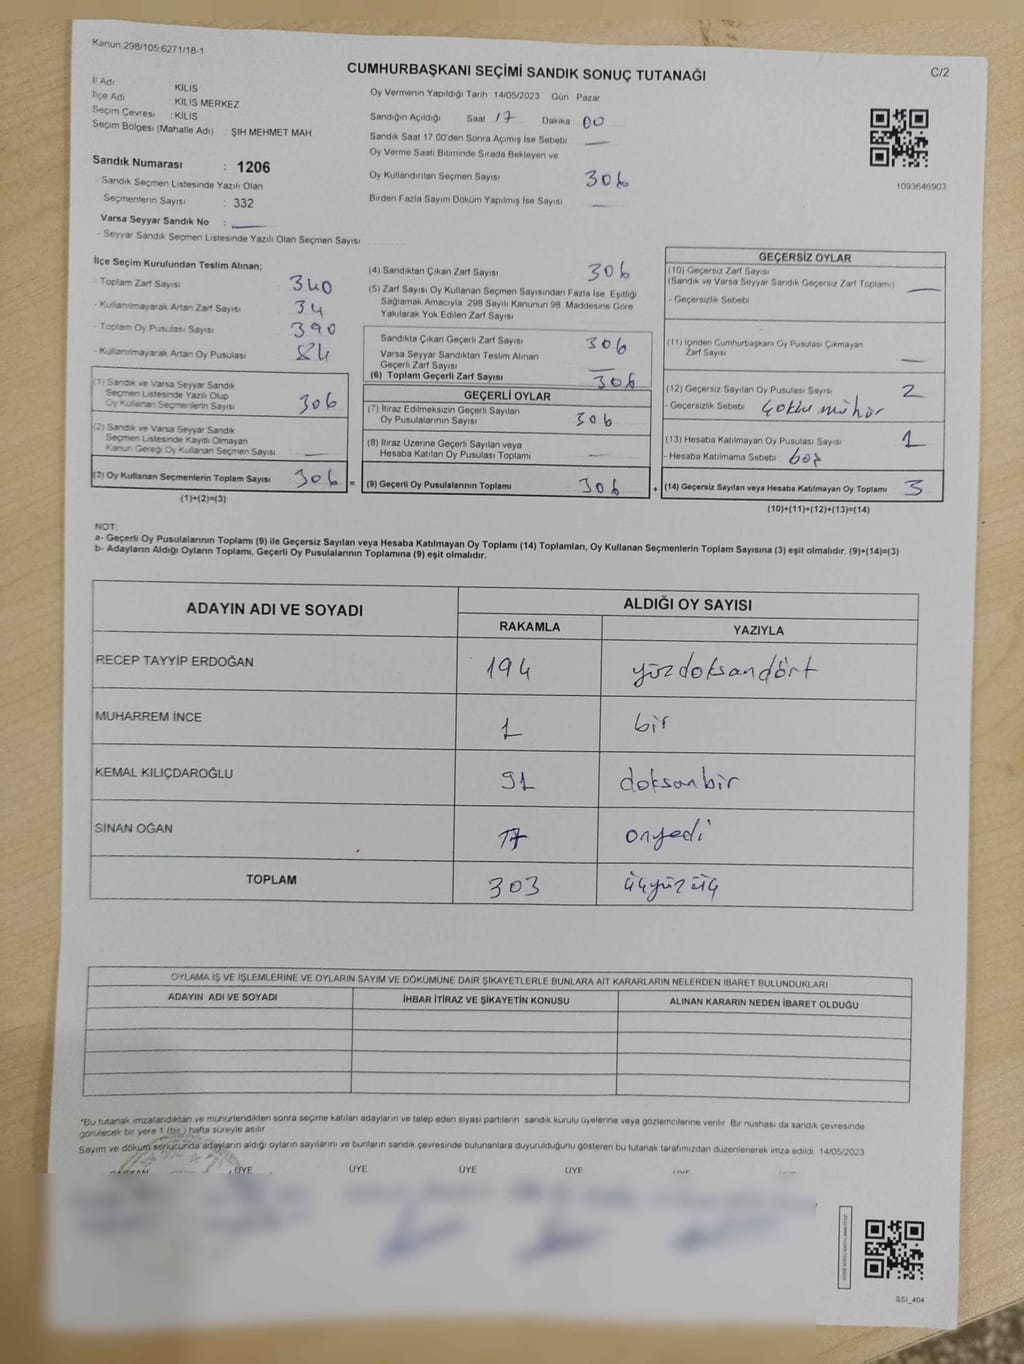 Kanun:298/105,6271/18-1
C/2
CUMHURBAŞKANI SEÇİMİ SANDIK SONUÇ TUTANAĞI
İl Adı KİLİS
İlçe Adı : KİLİS MERKEZ
Seçim Çevresi : KİLİS
Seçim Bölgesi (Mahalle Adı) : ŞIH MEHMET MAH
Sandık Numarası : 1206
- Sandık Seçmen Listesinde Yazılı Olan
Seçmenlerin Sayısı : 332
Varsa Seyyar Sandık No :
- Seyyar Sandık Seçmen Listesinde Yazılı Olan Seçmen Sayısı
Oy Vermenin Yapıldığı Tarih :14/05/2023 Gün Pazar
Sandığın Açıldığı Saat 17 Dakika 00
Sandık Saat 17.00'den Sonra Açımış İse Sebebi
Oy Verme Saati Bitiminde Sırada Bekleyen ve
Oy Kullandırılan Seçmen Sayısı 306
Birden Fazla Sayım Döküm Yapılmış İse Sayısı
1093646903
İlçe Seçim Kurulundan Teslim Alınan;
- Toplam Zarf Sayısı 340
- Kullanılmayarak Artan Zarf Sayısı 34
- Toplam Oy Pusulası Sayısı 390
- Kullanılmayarak Artan Oy Pusulası 84
(1) Sandık ve Varsa Seyyar Sandık
Seçmen Listesinde Yazılı Olup
Oy Kullanan Seçmenlerin Sayısı 306
(2) Sandık ve Varsa Seyyar Sandık
Seçmen Listesinde Kayıtlı Olmayan
Kanun Gereği Oy Kullanan Seçmen Sayısı
(3) Oy Kullanan Seçmenlerin Toplam Sayısı 306 =
(1)+(2)=(3)
(4) Sandıktan Çıkan Zarf Sayısı 306
(5) Zarf Sayısı Oy Kullanan Seçmen Sayısından Fazla İse, Eşitliği
Sağlamak Amacıyla 298 Sayılı Kanunun 98. Maddesine Göre
Yakılarak Yok Edilen Zarf Sayısı
Sandıkta Çıkan Geçerli Zarf Sayısı 306
Varsa Seyyar Sandıktan Teslim Alınan
Geçerli Zarf Sayısı
(6) Toplam Geçerli Zarf Sayısı 306
GEÇERLİ OYLAR
(7) İtiraz Edilmeksizin Geçerli Sayılan
Oy Pusulalarının Sayısı 306
(8) İtiraz Üzerine Geçerli Sayılan veya
Hesaba Katılan Oy Pusulası Toplamı
(9) Geçerli Oy Pusulalarının Toplamı 306 +
GEÇERSİZ OYLAR
(10) Geçersiz Zarf Sayısı
(Sandık ve Varsa Seyyar Sandık Geçersiz Zarf Toplamı)
- Geçersizlik Sebebi
(11) İçinden Cumhurbaşkanı Oy Pusulası Çıkmayan
Zarf Sayısı
(12) Geçersiz Sayılan Oy Pusulası Sayısı 2
- Geçersizlik Sebebi çoklu mühür
(13) Hesaba Katılmayan Oy Pusulası Sayısı 1
- Hesaba Katılmama Sebebi : boş
(14) Geçersiz Sayılan veya Hesaba Katılmayan Oy Toplamı 3
(10)+(11)+(12)+(13)=(14)
NOT:
a- Geçerli Oy Pusulalarının Toplamı (9) ile Geçersiz Sayılan veya Hesaba Katılmayan Oy Toplamı (14) Toplamları, Oy Kullanan Seçmenlerin Toplam Sayısına (3) eşit olmalıdır. (9)+(14)=(3)
b- Adayların Aldığı Oyların Toplamı, Geçerli Oy Pusulalarının Toplamına (9) eşit olmalıdır.
ADAYIN ADI VE SOYADI ALDIĞI OY SAYISI
RAKAMLA YAZIYLA
RECEP TAYYİP ERDOĞAN 194 yüzdoksandört
MUHARREM İNCE 1 bir
KEMAL KILIÇDAROĞLU 91 doksanbir
SİNAN OĞAN 17 onyedi
TOPLAM 303 üçyüzüç
OYLAMA İŞ VE İŞLEMLERİNE VE OYLARIN SAYIM VE DÖKÜMÜNE DAİR ŞİKAYETLERLE BUNLARA AİT KARARLARIN NELERDEN İBARET BULUNDUKLARI
ADAYIN ADI VE SOYADI İHBAR İTİRAZ VE ŞİKAYETİN KONUSU ALINAN KARARIN NEDEN İBARET OLDUĞU
*Bu tutanak imzalandıktan ve mühürlendikten sonra seçime katılan adayların ve talep eden siyasi partilerin sandık kurulu üyelerine veya gözlemcilerine verilir. Bir nushası da sandık çevresinde
görülecek bir yere 1 (bir) hafta süreyle asılır.
Sayım ve döküm sonucunda adayların aldığı oyların sayılarını ve bunların sandık çevresinde bulunanlara duyurulduğunu gösteren bu tutanak tarafımızdan düzenlenerek imza edildi. 14/05/2023
ÜYE ÜYE ÜYE ÜYE
SSI_404